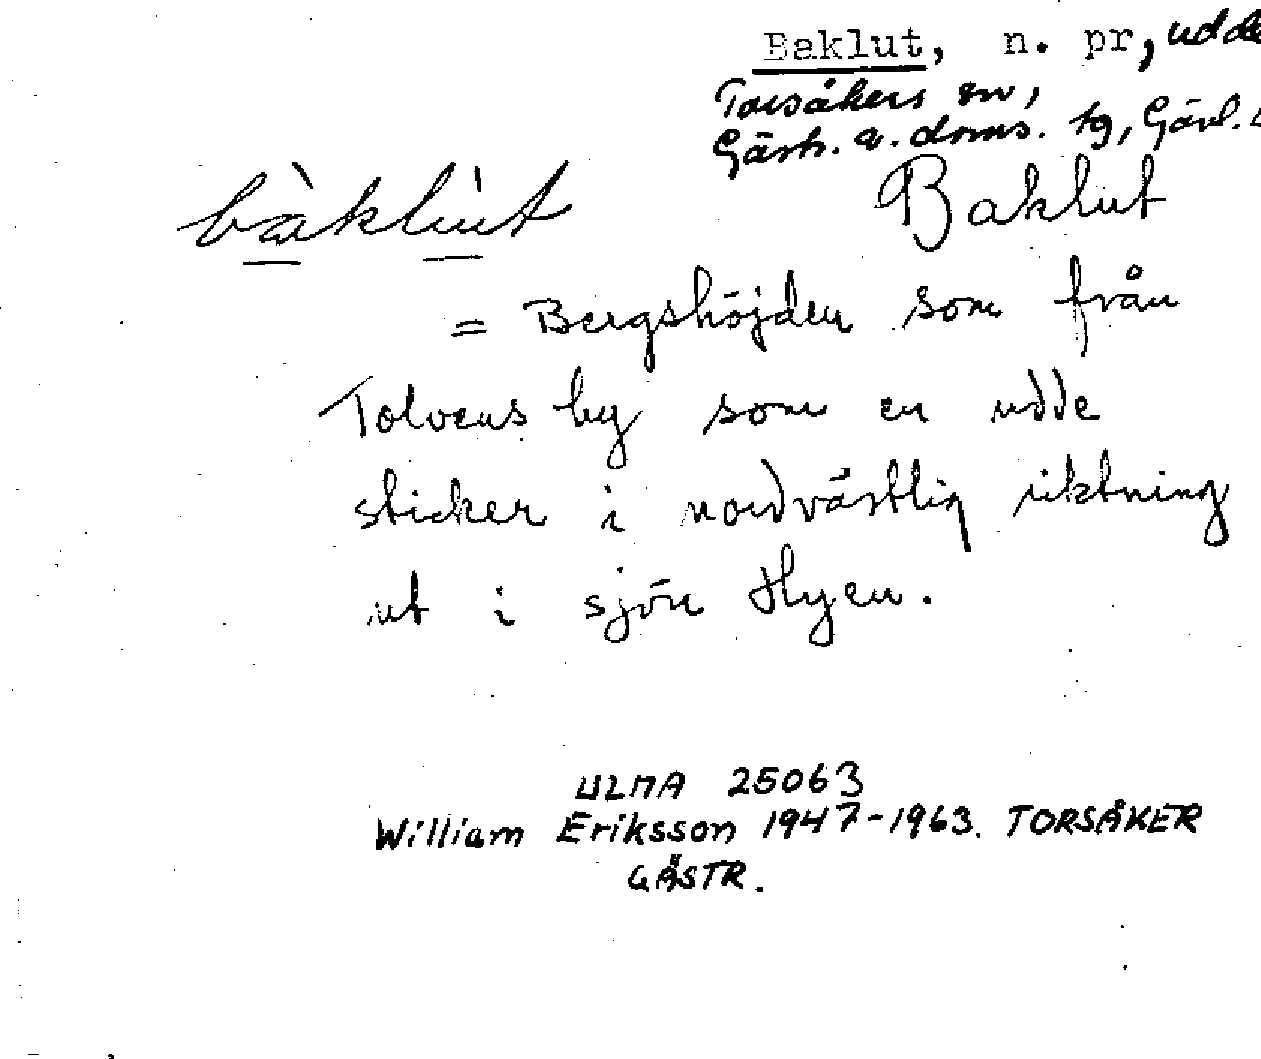 Baklut, n. pr, udde
Torsåkers sn,
Gästr. ö. doms. tg, Gävl.
bàklùt Baklut
= Bergshöjden som från
Tolvens by som en udde
sticker i nordvästlig riktning
ut i sjön Hyen.
ULMA 25063
William Eriksson 1947-1963. TORSÅKER
GÄSTR.